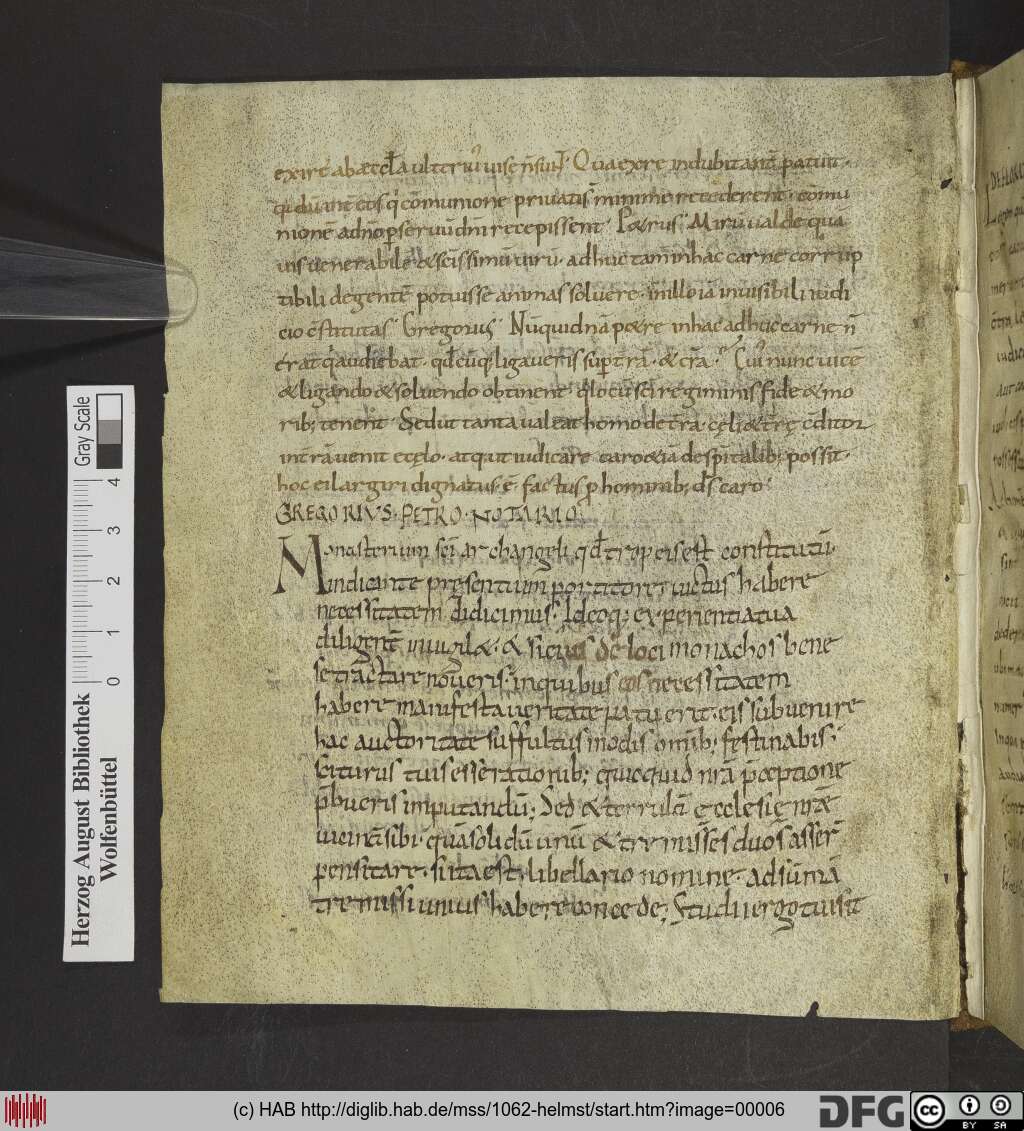 exire ab æccl̅a ulterius uise n̅ sunt. Qua ex re indubitant̅ patuit.
qd̅ dum int̅ eos q̅ comunione priuatis minime recederent. comu
nione a dn̅o p̱ seruu̅ dn̅i recepissent. Petrus. Miru̅ ualde qua̅
uis uenerabile̅ & sc̅issimu̅ uiru̅. adhuc tam̅ in hac carne corrup
tibili degente̅ potuisse animas soluere. in illo ia̅ inuisibili iudi
cio c̅stitutas. Gregorius. Nu̅quidna̅ petre in hac adhuc carne n̅
erat q̅ audiebat. qd̅cu̅q; ligaueris sup̱ t̅ra̅. & c̅ra̅. Cui̅ nunc uice̅
& ligando & soluendo obtinent. q̅ locu̅ sc̅i regiminis fide & mo
rib; tenent. Sed ut tanta ualeat homo de t̅ra. cęli & t̅rę c̅ditor
in t̅ra̅ uenit e cęlo. atq; ut iudicare caro & ia̅ de sp̅italib; possit.
hoc ei largiri dignatus e̅. factus p̱ hominib; d̅s caro.
GREGORIVS. PETRO. NOTARIO.
Monasterium sc̅i archangeli. qd̅ tropeis est constitutu̅.
indicante presentium portitore. uictus habere
necessitatem didicimus. Ideoq; experientia tua
diligent̅ inuigil&. & si eius de loci monachos bene
se tractare noueris. in quibus eos necessitatem
habere manifesta ueritate patuerit. eis subuenire
hac auctoritate suffultus modis omib; festinabis.
sciturus tuis esse rationib; quicquid nr̅a p̅ceptione
p̅bueris imputandu̅; Sed & terrula̅ ęcclesię nr̅æ
uicina̅ sibi. qua̅ soli du̅ unu̅ & tremisses duos asser̅
pensitare. si ita est. libellario nomine. ad su̅ma̅
tremissi unius habere concede; Studii ergo tui sit
Herzog August Bibliothek
Wolfenbüttel
0 1 2 3 4
Gray Scale
(c) HAB http://diglib.hab.de/mss/1062-helmst/start.htm?image=00006
DFG
cc BY SA